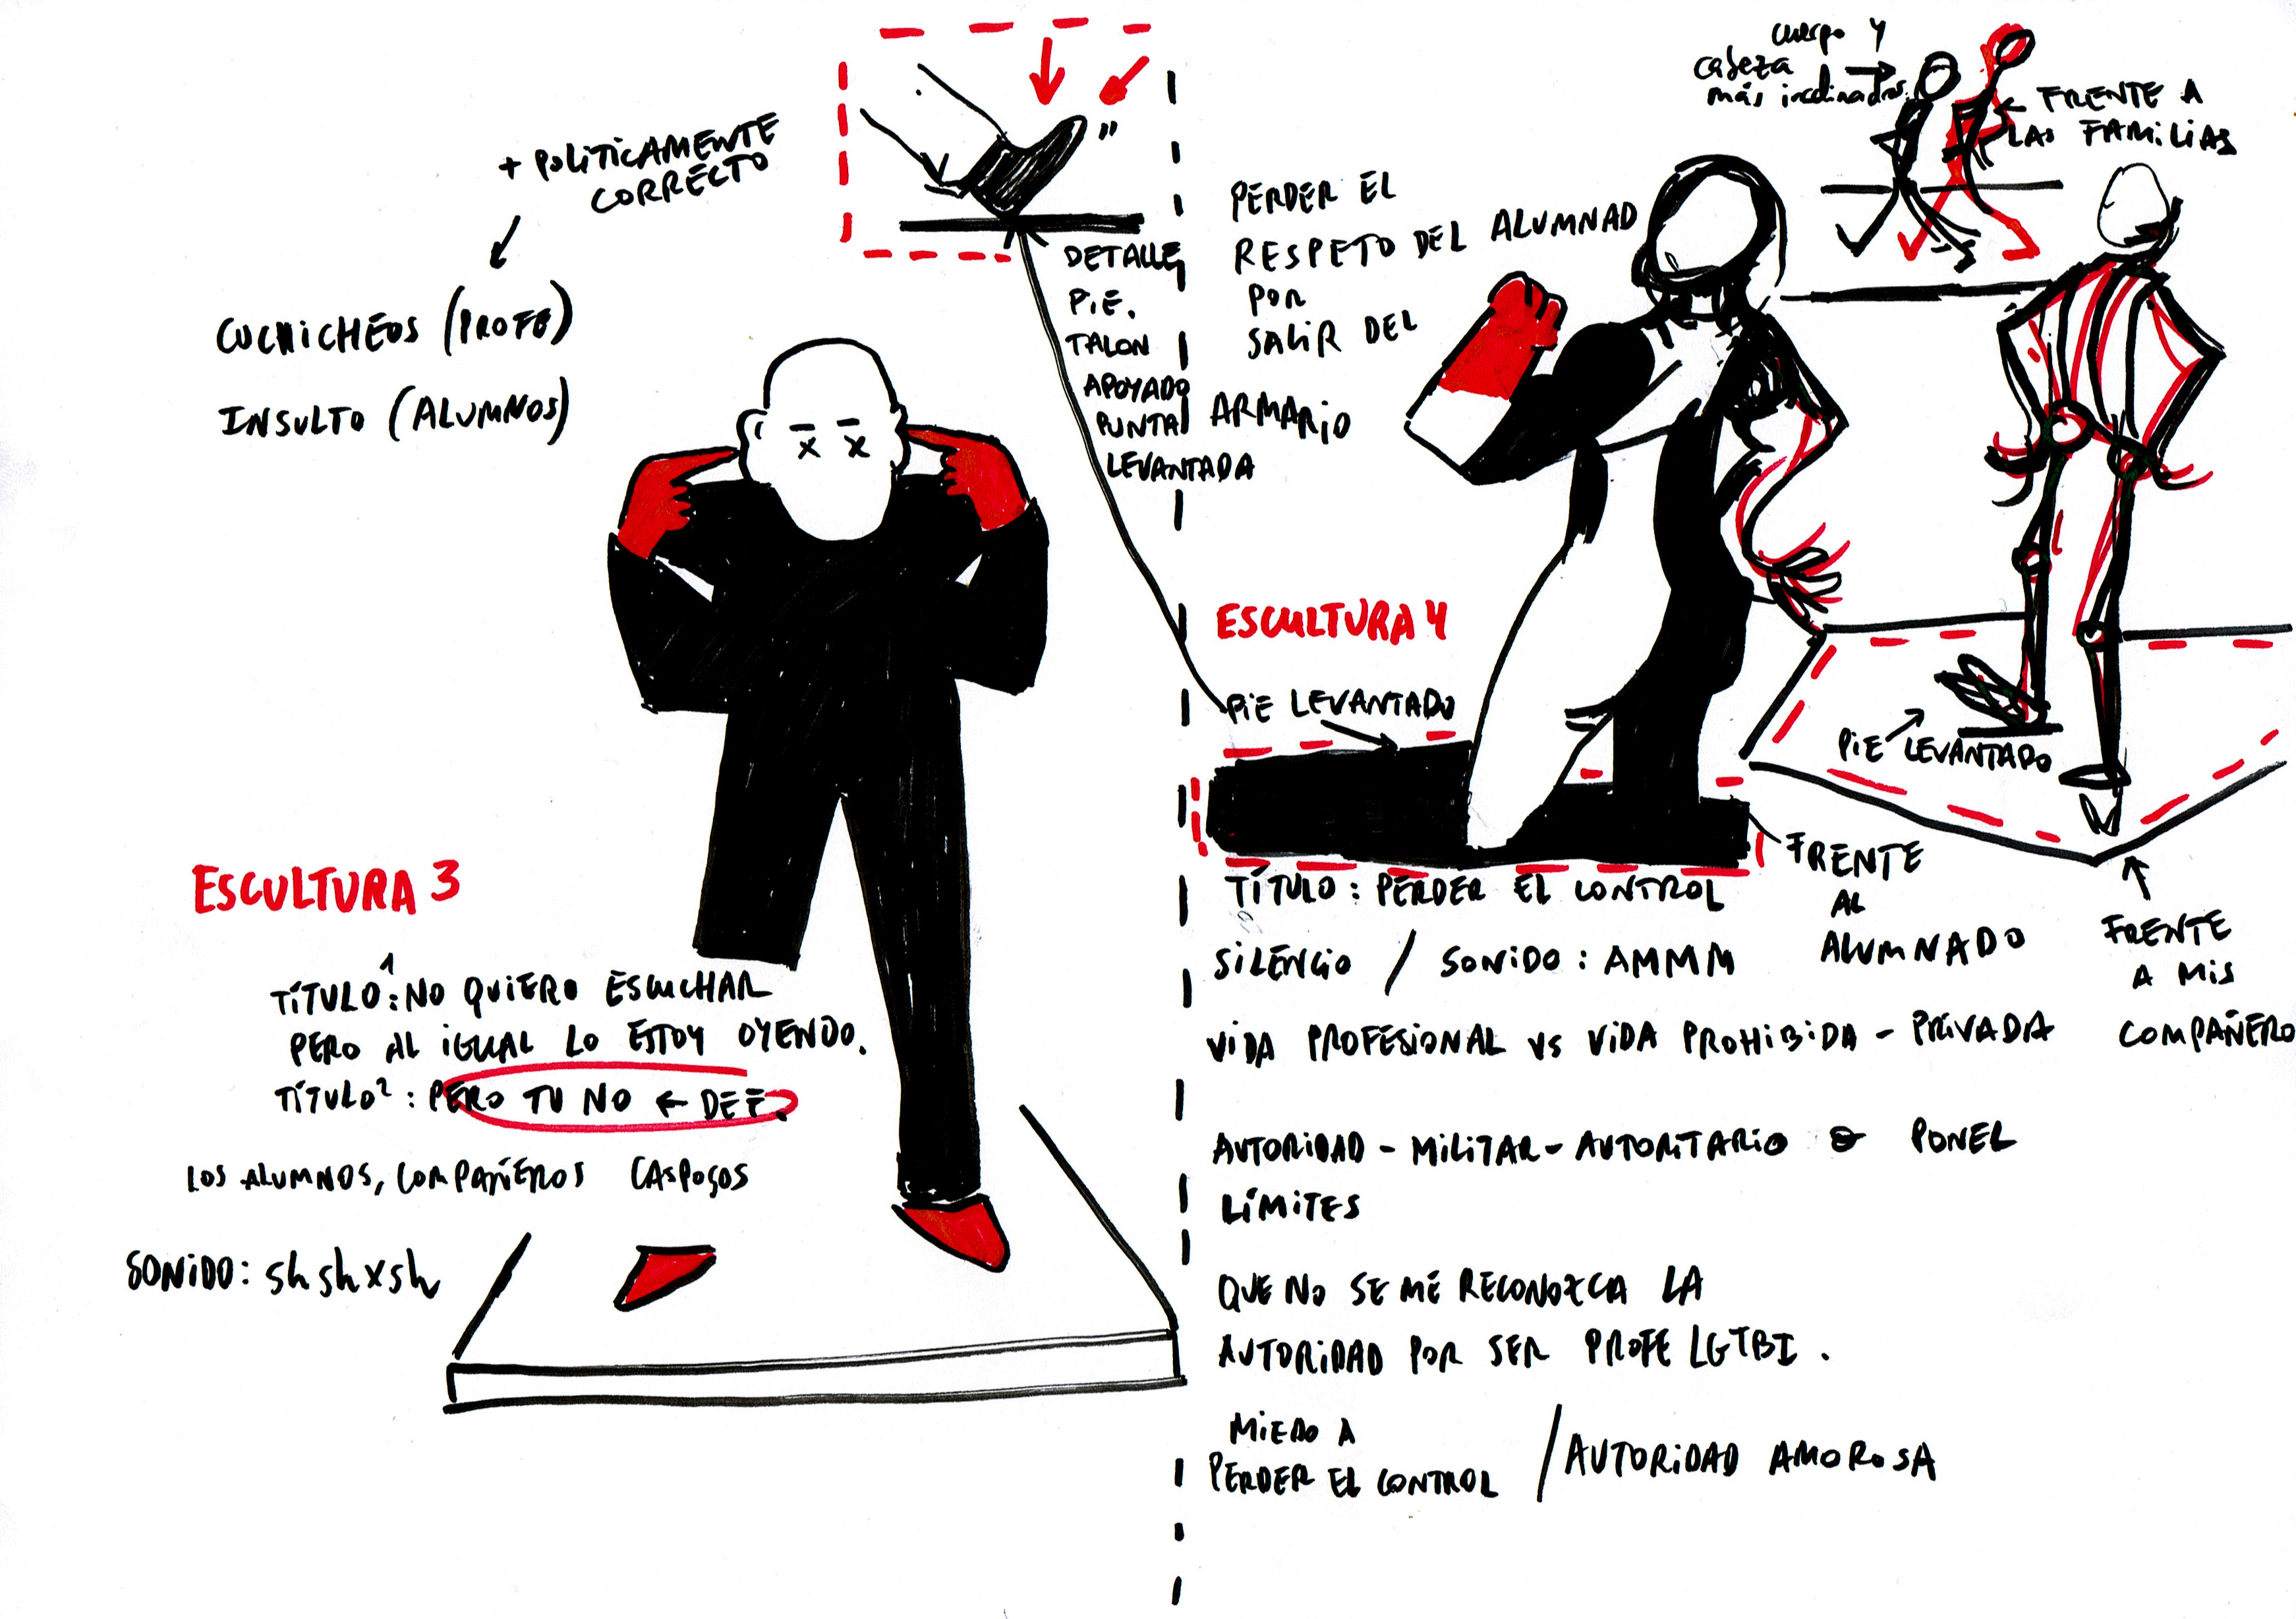 + POLITICAMENTE
CORRECTO
CUCHICHEOS (PROFE)
INSULTO (ALUMNOS)
ESCULTURA 3
TÍTULO 1: NO QUIERO ESCUCHAR
PERO AL IGUAL LO ESTOY OYENDO.
TÍTULO 2: PERO TU NO ← DEF.
LOS ALUMNOS, COMPAÑEROS CASPOSOS
SONIDO: sh sh x sh
DETALLE
PIE.
TALON
APOYADO
PUNTA
LEVANTADA
PERDER EL
RESPETO DEL ALUMNAD
POR
SALIR DEL
ARMARIO
cuerpo y
cabeza
más inclinados
FRENTE A
LAS FAMILIAS
ESCULTURA 4
PIE LEVANTADO
PIE LEVANTADO
FRENTE
AL
ALUMNADO
FRENTE
A MIS
COMPAÑERO
TÍTULO: PERDER EL CONTROL
SILENCIO / SONIDO: AMMM
VIDA PROFESIONAL VS VIDA PROHIBIDA - PRIVADA
AUTORIDAD - MILITAR - AUTORITARIO PONEL
LÍMITES
QUE NO SE ME RECONOZCA LA
AUTORIDAD POR SER PROFE LGTBI.
MIEDO A
PERDER EL CONTROL / AUTORIDAD AMOROSA